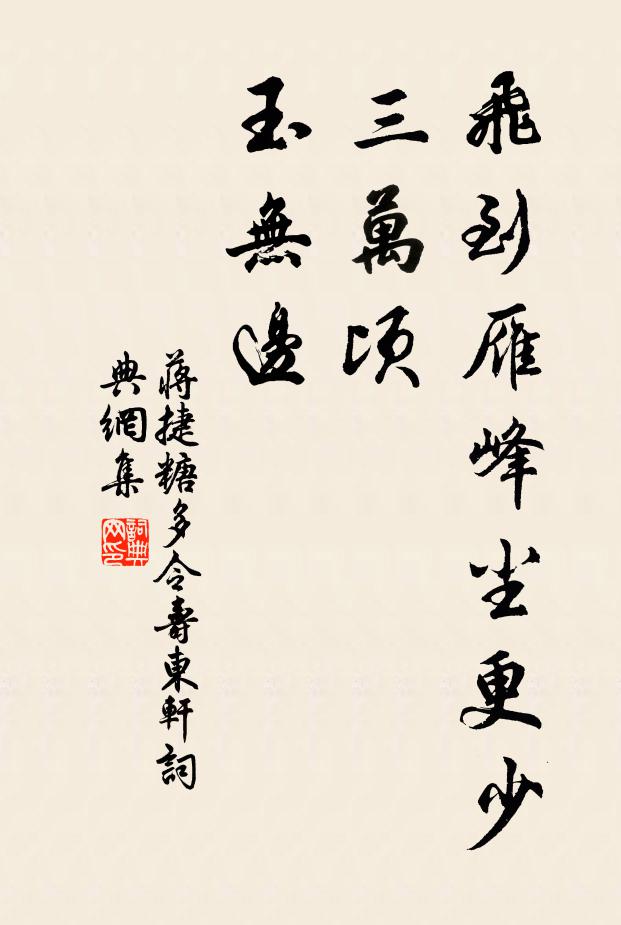 飛到雁峰尘更少
三萬頃
玉無邊
蔣捷糖多令壽東軒詞
典網集
詞典
网印